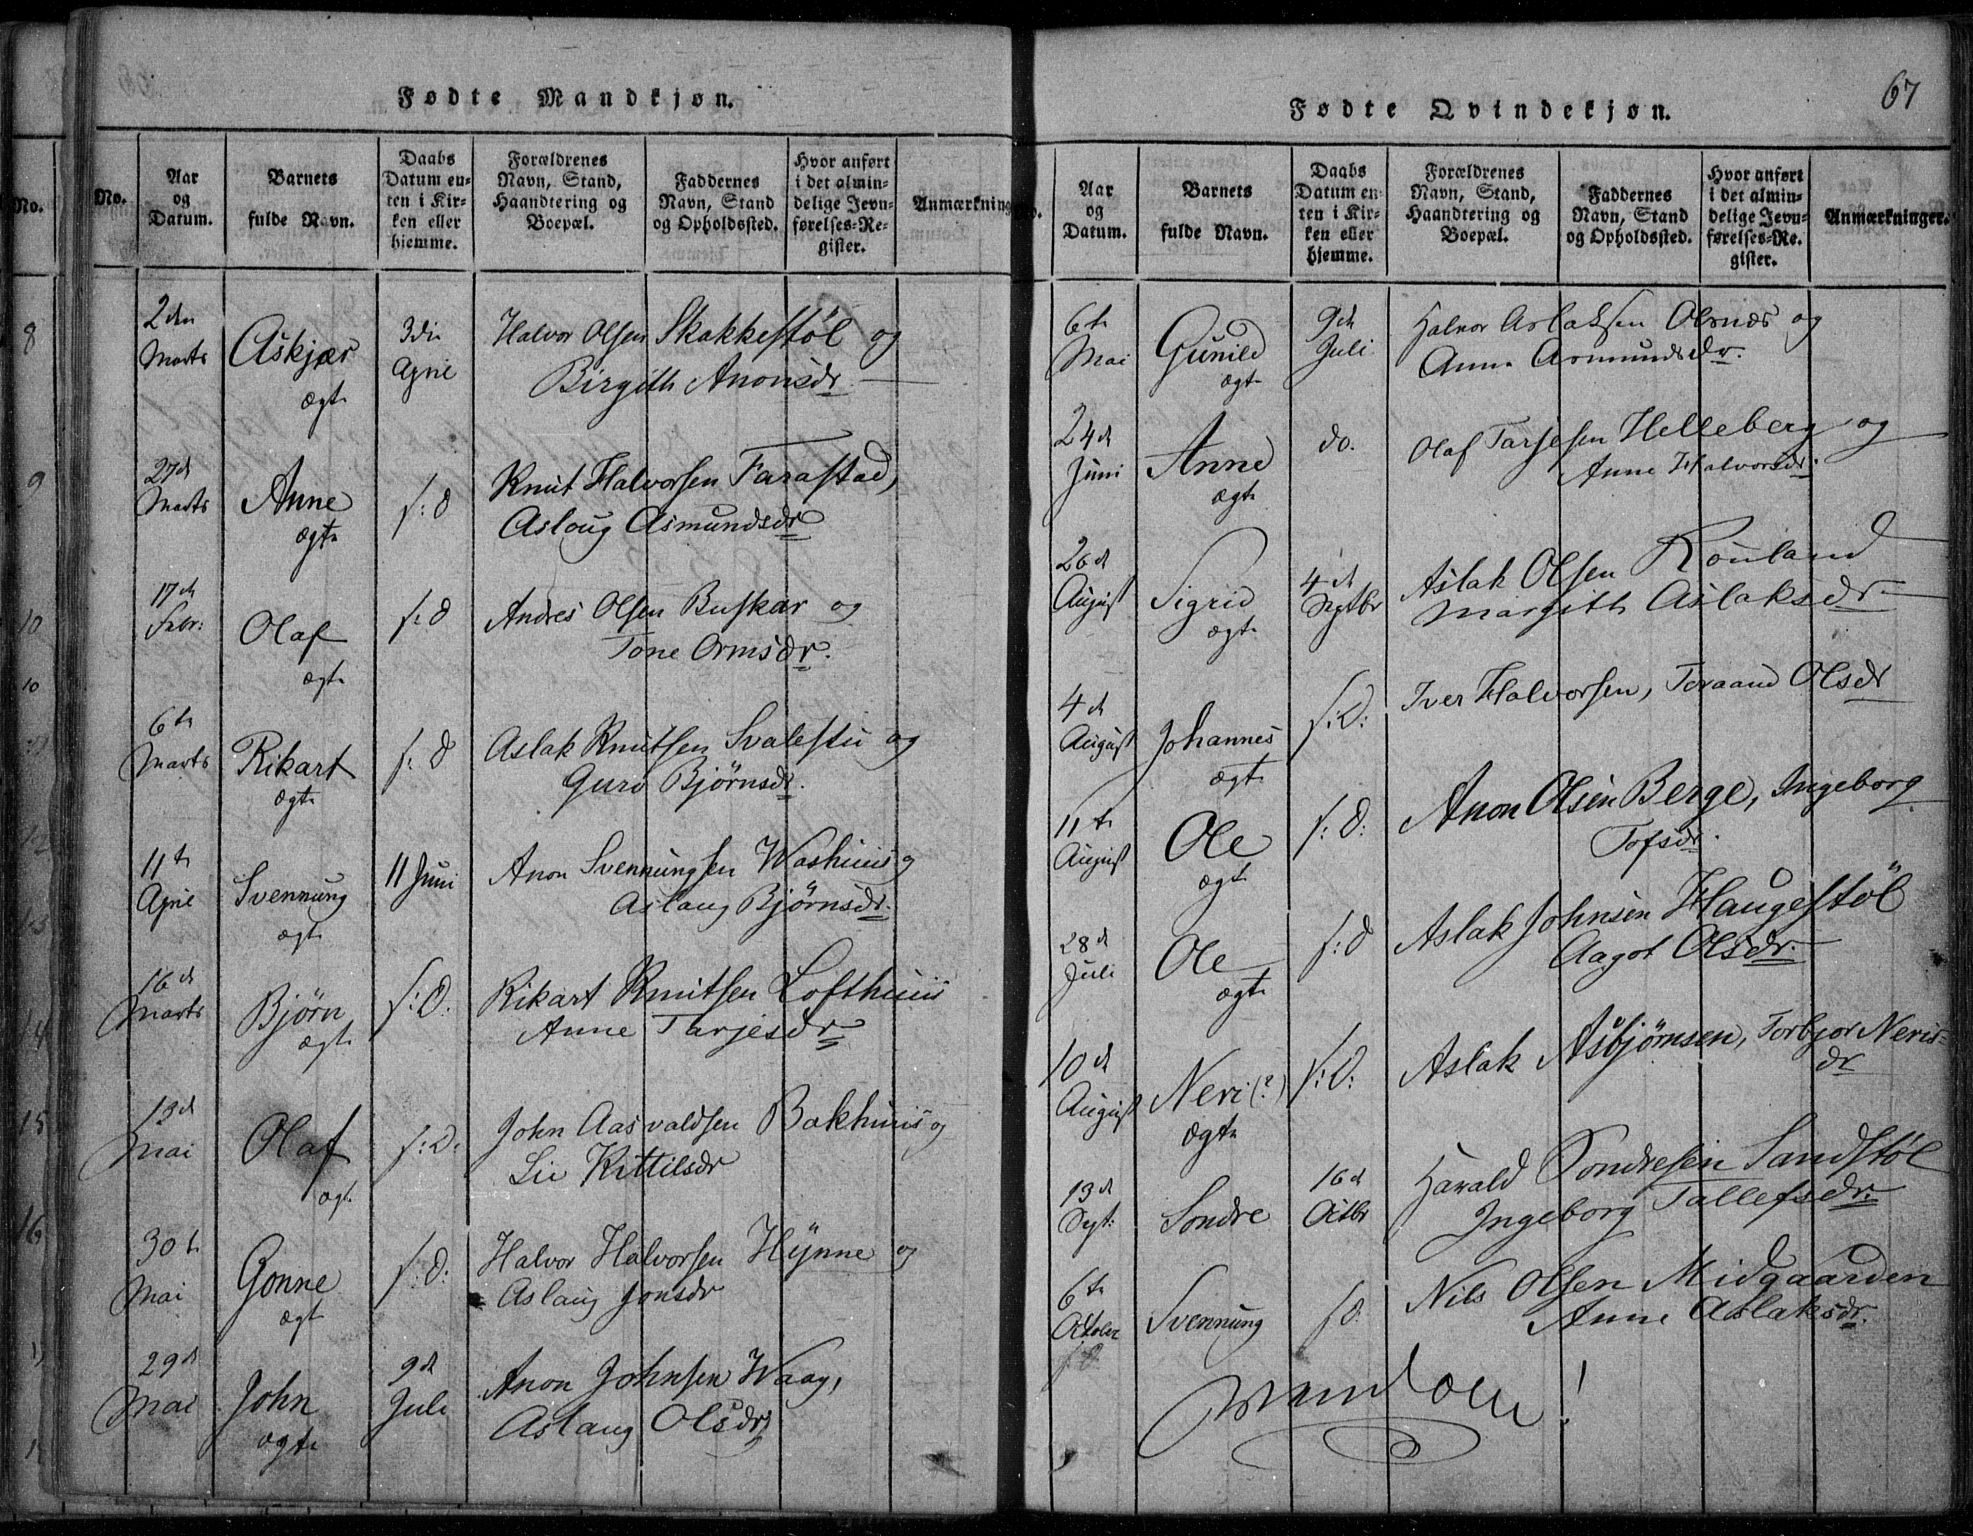 Fødte Mandkjøn.
No.
Aar
og
Datum.
Barnets
fulde Navn.
Daabs
Datum en-
ten i Kir-
ken eller
hjemme.
Forældrenes
Navn, Stand,
Haandtering og
Boepæl.
Faddernes
Navn, Stand
og Opholdssted.
Hvor anført
i det almin-
delige Jevn-
førelses-Re-
gister.
Anmærkning
2den
Marts
Askjær
ægte
3die
April
Halvor Olsen Skakkestöl og
Birgith Anonsdr
27d
Marts
Anne
ægte
s: d
Knut Halvorsen Farastad,
Asloug Asmundsdr
17de
Febr:
Olaf
ægte
s: d
Andres Olsen Buskar og
Tone Ormsdr.
6te
Marts
Rikart
ægte
s: d
Aslak Knutsen Svalestu og
Guro Bjørnsdr.
11te
April
Svennung
ægte
11 Juni
Anon Svennungsen Washuus og
Aslaug Bjørnsdr.
16d
Marts
Bjørn
ægte
s: d.
Rikart Knutsen Lofthuus
Anne Tarjesdr
13d
Mai
Olaf
ægte
s: d.
John Aasvaldsen Bakhuus og
Liv Kittilsdr
30te
Mai
Gonne
ægt
s: d:
Halvor Halvorsen Hynne og
Aslaug Jonsdr
29d
Mai
John
ægte
9d
Juli
Anon Johnsen Waag,
Aslaug Olsdr
67
Fødte Qvindekjøn.
Aar
og
Datum.
Barnets
fulde Navn.
Daabs
Datum en-
ten i Kir-
ken eller
hjemme.
Forældrenes
Navn, Stand,
Haandtering og
Boepæl.
Faddernes
Navn, Stand
og Opholdssted.
Hvor anført
i det almin-
delige Jevn-
førelses-Re-
gister.
Anmærkninger.
6te
Mai
Gunild
ægte
9de
Juli
Halvor Aslaksen Olsnæs og
Anne Asmundsdr.
24d
Juni
Anne
ægte
do.
Olaf Tarjesen Helleberg og
Anne Halvorsdr.
26d
August
Sigrid
ægte
4d
Septbr
Aslak Olsen Rouland
Margith Aslaksdr
4d
August
Johannes
ægte
s: d:
Iver Halvorsen, Toraand Olsdr
11te
August
Ole
ægte
s: d:
Anon Olsen Berge, Ingeborg
Tofsdr.
28d
Juli
Ole
ægte
s: d
Aslak Johnsen Haugestöl
Aagot Olsdr.
10d
August
Neri (?)
ægte
s: d:
Aslak Asbjørnsen, Torbjør Neris-
dr
13d
Sept:
Sondre
16d
Octbr
Harald Sondresen Sandstöl
Ingeborg Tallefsdr.
6te
October
Svennung
s d:
Nils Olsen Midgaarden
Anne Aslaksdr.